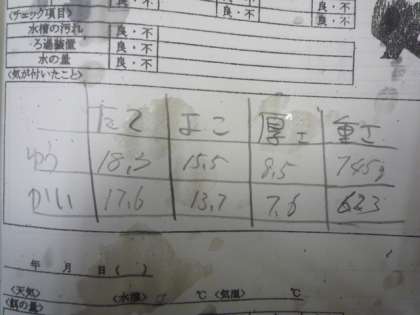 良・不
良・不 良・不
<チェック項目>
水槽の汚れ 良・不
ろ過装置 良・不
水の量 良・不
<気が付いたこと>
たて よこ 厚さ 重さ
ゆう 18,3 15,5 8,5 745g
かい 17,6 13,7 7,6 623
年 月 日( )
<天気> <水温> ℃ <気温> ℃
<餌の量>